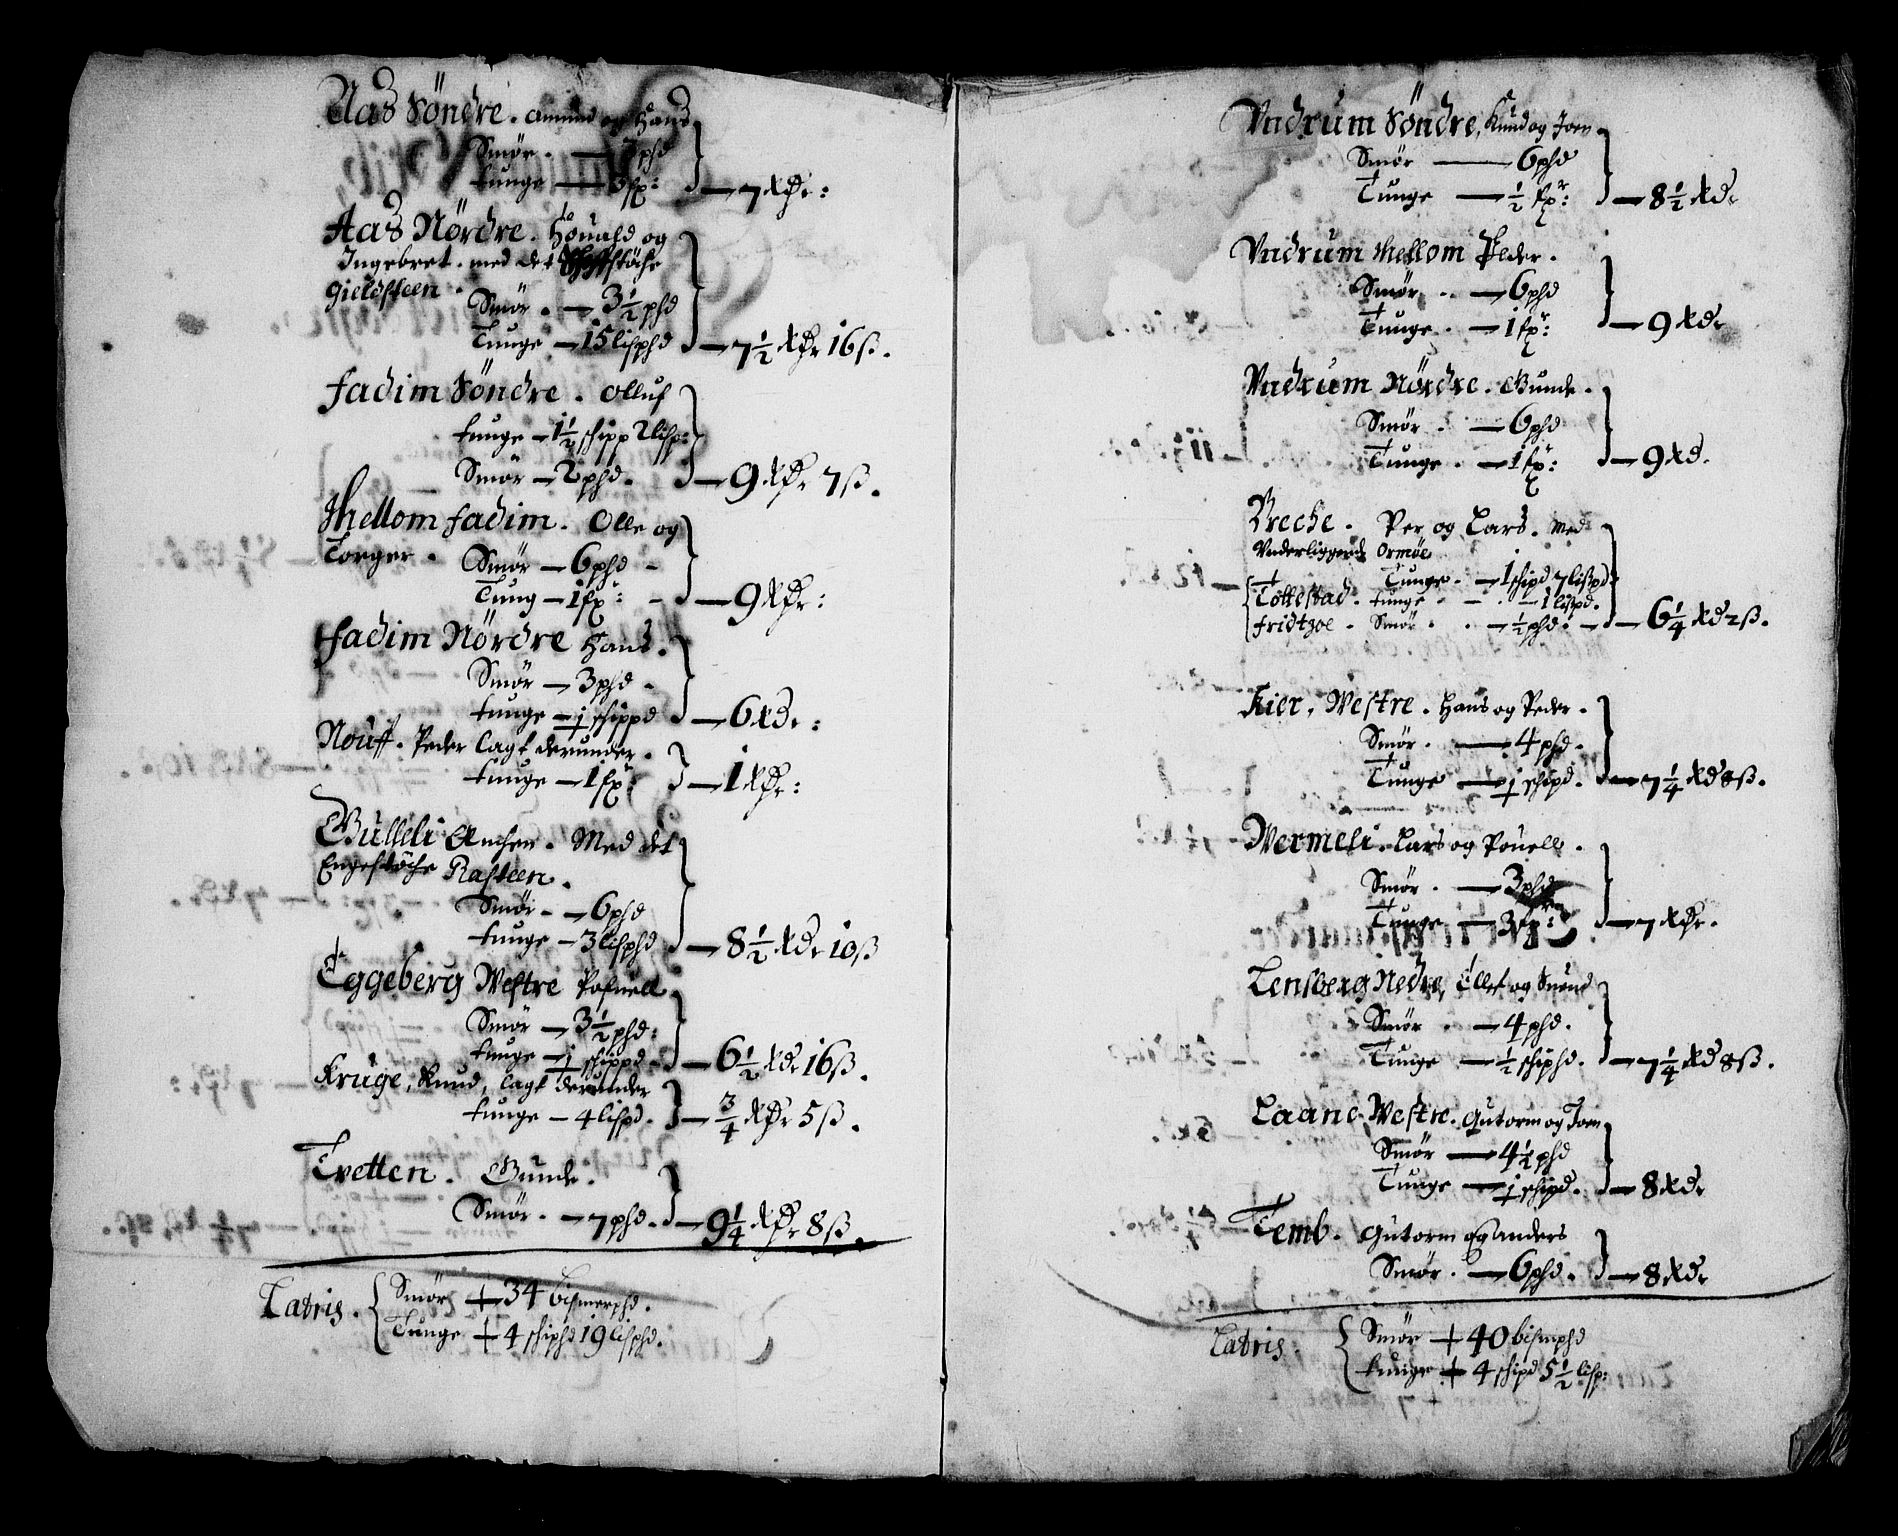 Aas Söndre. Amund og Hans
Smør. — 3 phd
tunge — 3 fx: — 7 Rdr:
Aas Nördre. Houald og
Ingebret. med det
gieldsteen.
Smør. — 3 1/2 phd
Tunge — 15 lisphd — 7 1/2 Rdr 16 ß.
Fadim Söndre. Olluf
tunge — 1 1/2 schipp 2 lisp:
Smør — 2 phd. — 9 Rdr 7 ß.
Mellom Fadim. Olle og
Torger.
Smør — 6 phd
Tung — 1 fx: — 9 Rdr:
Fadim Nördre Hans.
Smør — 3 phd
tunge — 1 schippd — 6 Rdr:
Nouff. Peder lagt derunder.
tunge — 1 fx: — 1 Rdr:
Gulleli Anchen. Med det
Engestöche Rasteen.
Smør — 6 phd
tunge — 3 lisphd — 8 1/2 Rdr 10 ß
Eggeberg Westre Pofuell
Smør — 3 1/2 phd:
tunge — 1 schippd — 6 1/2 Rdr 16 ß.
Kruge, Knud, lagt derunder
tunge — 4 lispd. — 3/4 Rdr 5 ß.
Tvetten. Gunde.
Smør. — 7 phd. — 9 1/4 Rdr 8 ß.
Latris. Smør + 34 bismerphd.
Tunge + 4 schiphd 19 lisphd.
Vndrum Söndre, Knud og Joen
Smør — 6 phd
Tunge — 1/2 fxr: — 8 1/2 Rdr
Vndrum Mellom Peder.
Smør — 6 phd
Tunge — 1 fxr: — 9 Rdr
Vndrum Nördre. Gunde.
Smør. — 6 phd
Tunge. — 1 fx: — 9 Rd.
Breche. Per og Lars. Med
Vnderliggende Ormöe
Tunge. — 1 schipd 7 lißpd
Tottestad. tunge — 1 lißpd.
fridtzoe. Smør — 1/2 phd. — 6 1/4 Rd 2 ß.
Kier. Westre. Hans og Peder.
Smør. — 4 phd.
Tunge — 1 schipd. — 7 1/4 Rd 8 ß.
Wermeli. Lars og Pouell.
Smør. — 3 phd
Tunge — 3 fxr: — 7 Rdr.
Lensberg Nedre, Ellef og Suend
Smør — 4 phd.
Tunge — 1/2 schiphd. — 7 1/4 Rd 8 ß.
Laane Westre. Gutorm og Joen
Smør — 4 1/2 phd
Tunge — 1 schipd. — 8 Rdr
Temb. Gutorm og Anders
Smør. — 6 phd. — 8 Rdr
Latris. Smør + 40 bismphd
tunge + 4 schipd 5 1/2 lisp: